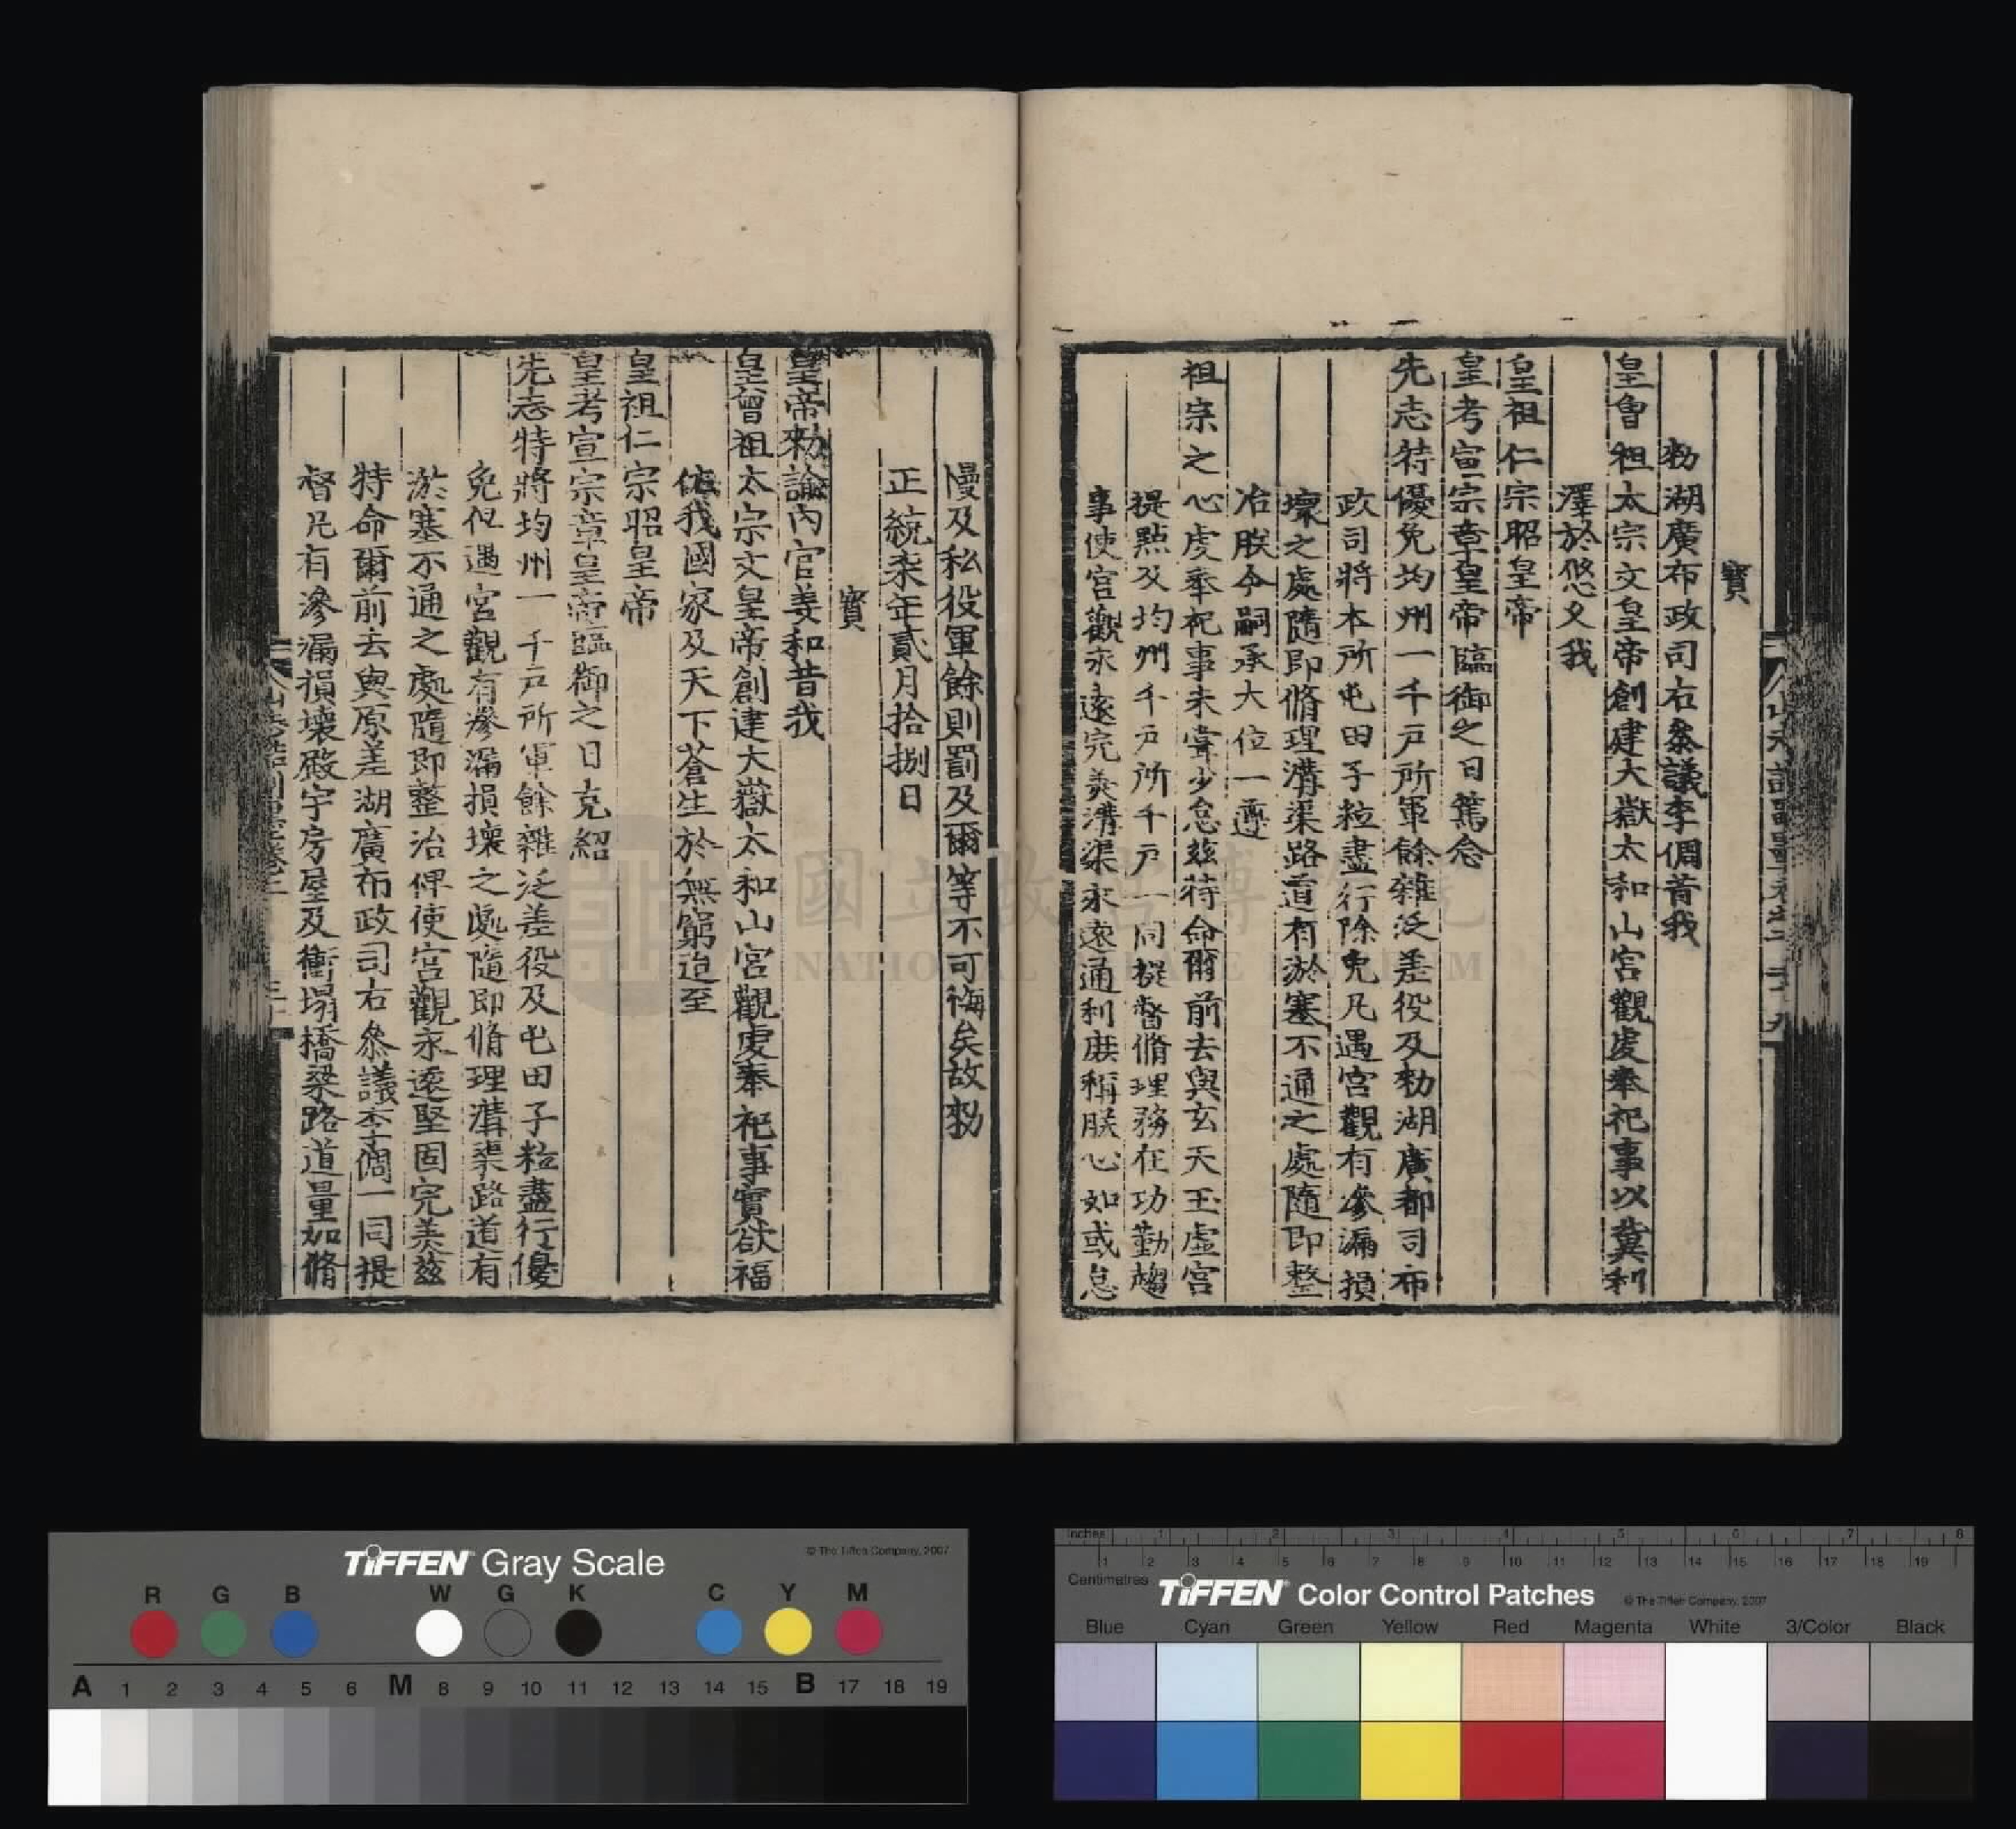 寳
勑湖廣布政司右叅議李倜昔我
皇曾祖太宗文皇帝創建大嶽太和山宮觀處奉祀事以冀利
澤於悠乆我
皇祖仁宗昭皇帝
皇考宣宗章皇帝臨御之日篤念
先志特優免均州一千戸所軍餘雜泛差役及勑湖廣都司布
政司將本所屯田子粒盡行除免凡遇宮觀有滲漏損
壞之處隨即脩理溝渠路道有淤塞不通之處隨即整
治朕今嗣承大位一遵
祖宗之心虔奉祀事未嘗少怠兹特命爾前去與玄天玉虛宮
提點及均州千戸所千戸一同提督脩理務在功勤趨
事使宮觀永遠完美溝渠永遠通利庶稱朕心如或怠
慢及私役軍餘則罰及爾等不可悔矣故勑
正統柒年貳月拾捌日
寳
皇帝勑諭內官姜和昔我
皇曾祖太宗文皇帝創建大嶽太和山宮觀虔奉祀事實欲福
佑我國家及天下蒼生於無窮迨至
皇祖仁宗昭皇帝
皇考宣宗章皇帝臨御之日克紹
先志特將均州一千戸所軍餘雜泛差役及屯田子粒盡行優
免但遇宮觀有滲漏損壞之處隨即脩理溝渠路道有
淤塞不通之處隨即整治俾使宮觀永遠堅固完美兹
特命爾前去與原差湖廣布政司右叅議李倜一同提
督凡有滲漏損壞殿宇房屋及衝塌橋梁路道量加脩
國立故宮博物院
NATIONAL PALACE MUSEUM
TIFFEN Gray Scale
© The Tiffen Company, 2007
R G B W G K C Y M
A 1 2 3 4 5 6 M 8 9 10 11 12 13 14 15 B 17 18 19
Inches 1 2 3 4 5 6 7 8
Centimetres 1 2 3 4 5 6 7 8 9 10 11 12 13 14 15 16 17 18 19
TIFFEN Color Control Patches
© The Tiffen Company, 2007
Blue Cyan Green Yellow Red Magenta White 3/Color Black